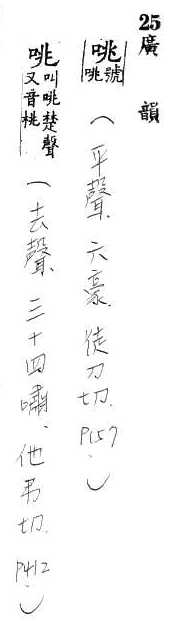 25廣韻
咷號咷（平聲、六豪、徒刀切、P157、）
咷叫咷楚聲又音桃（去聲、三十四嘯、他弔切、P412）